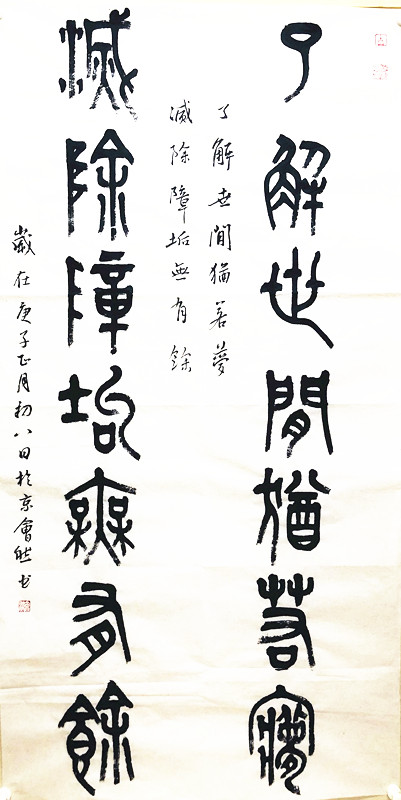 了解世間猶若夢
滅除障垢無有餘
了解世間猶若夢
滅除障垢無有餘
歲在庚子正月初八日於京會然书